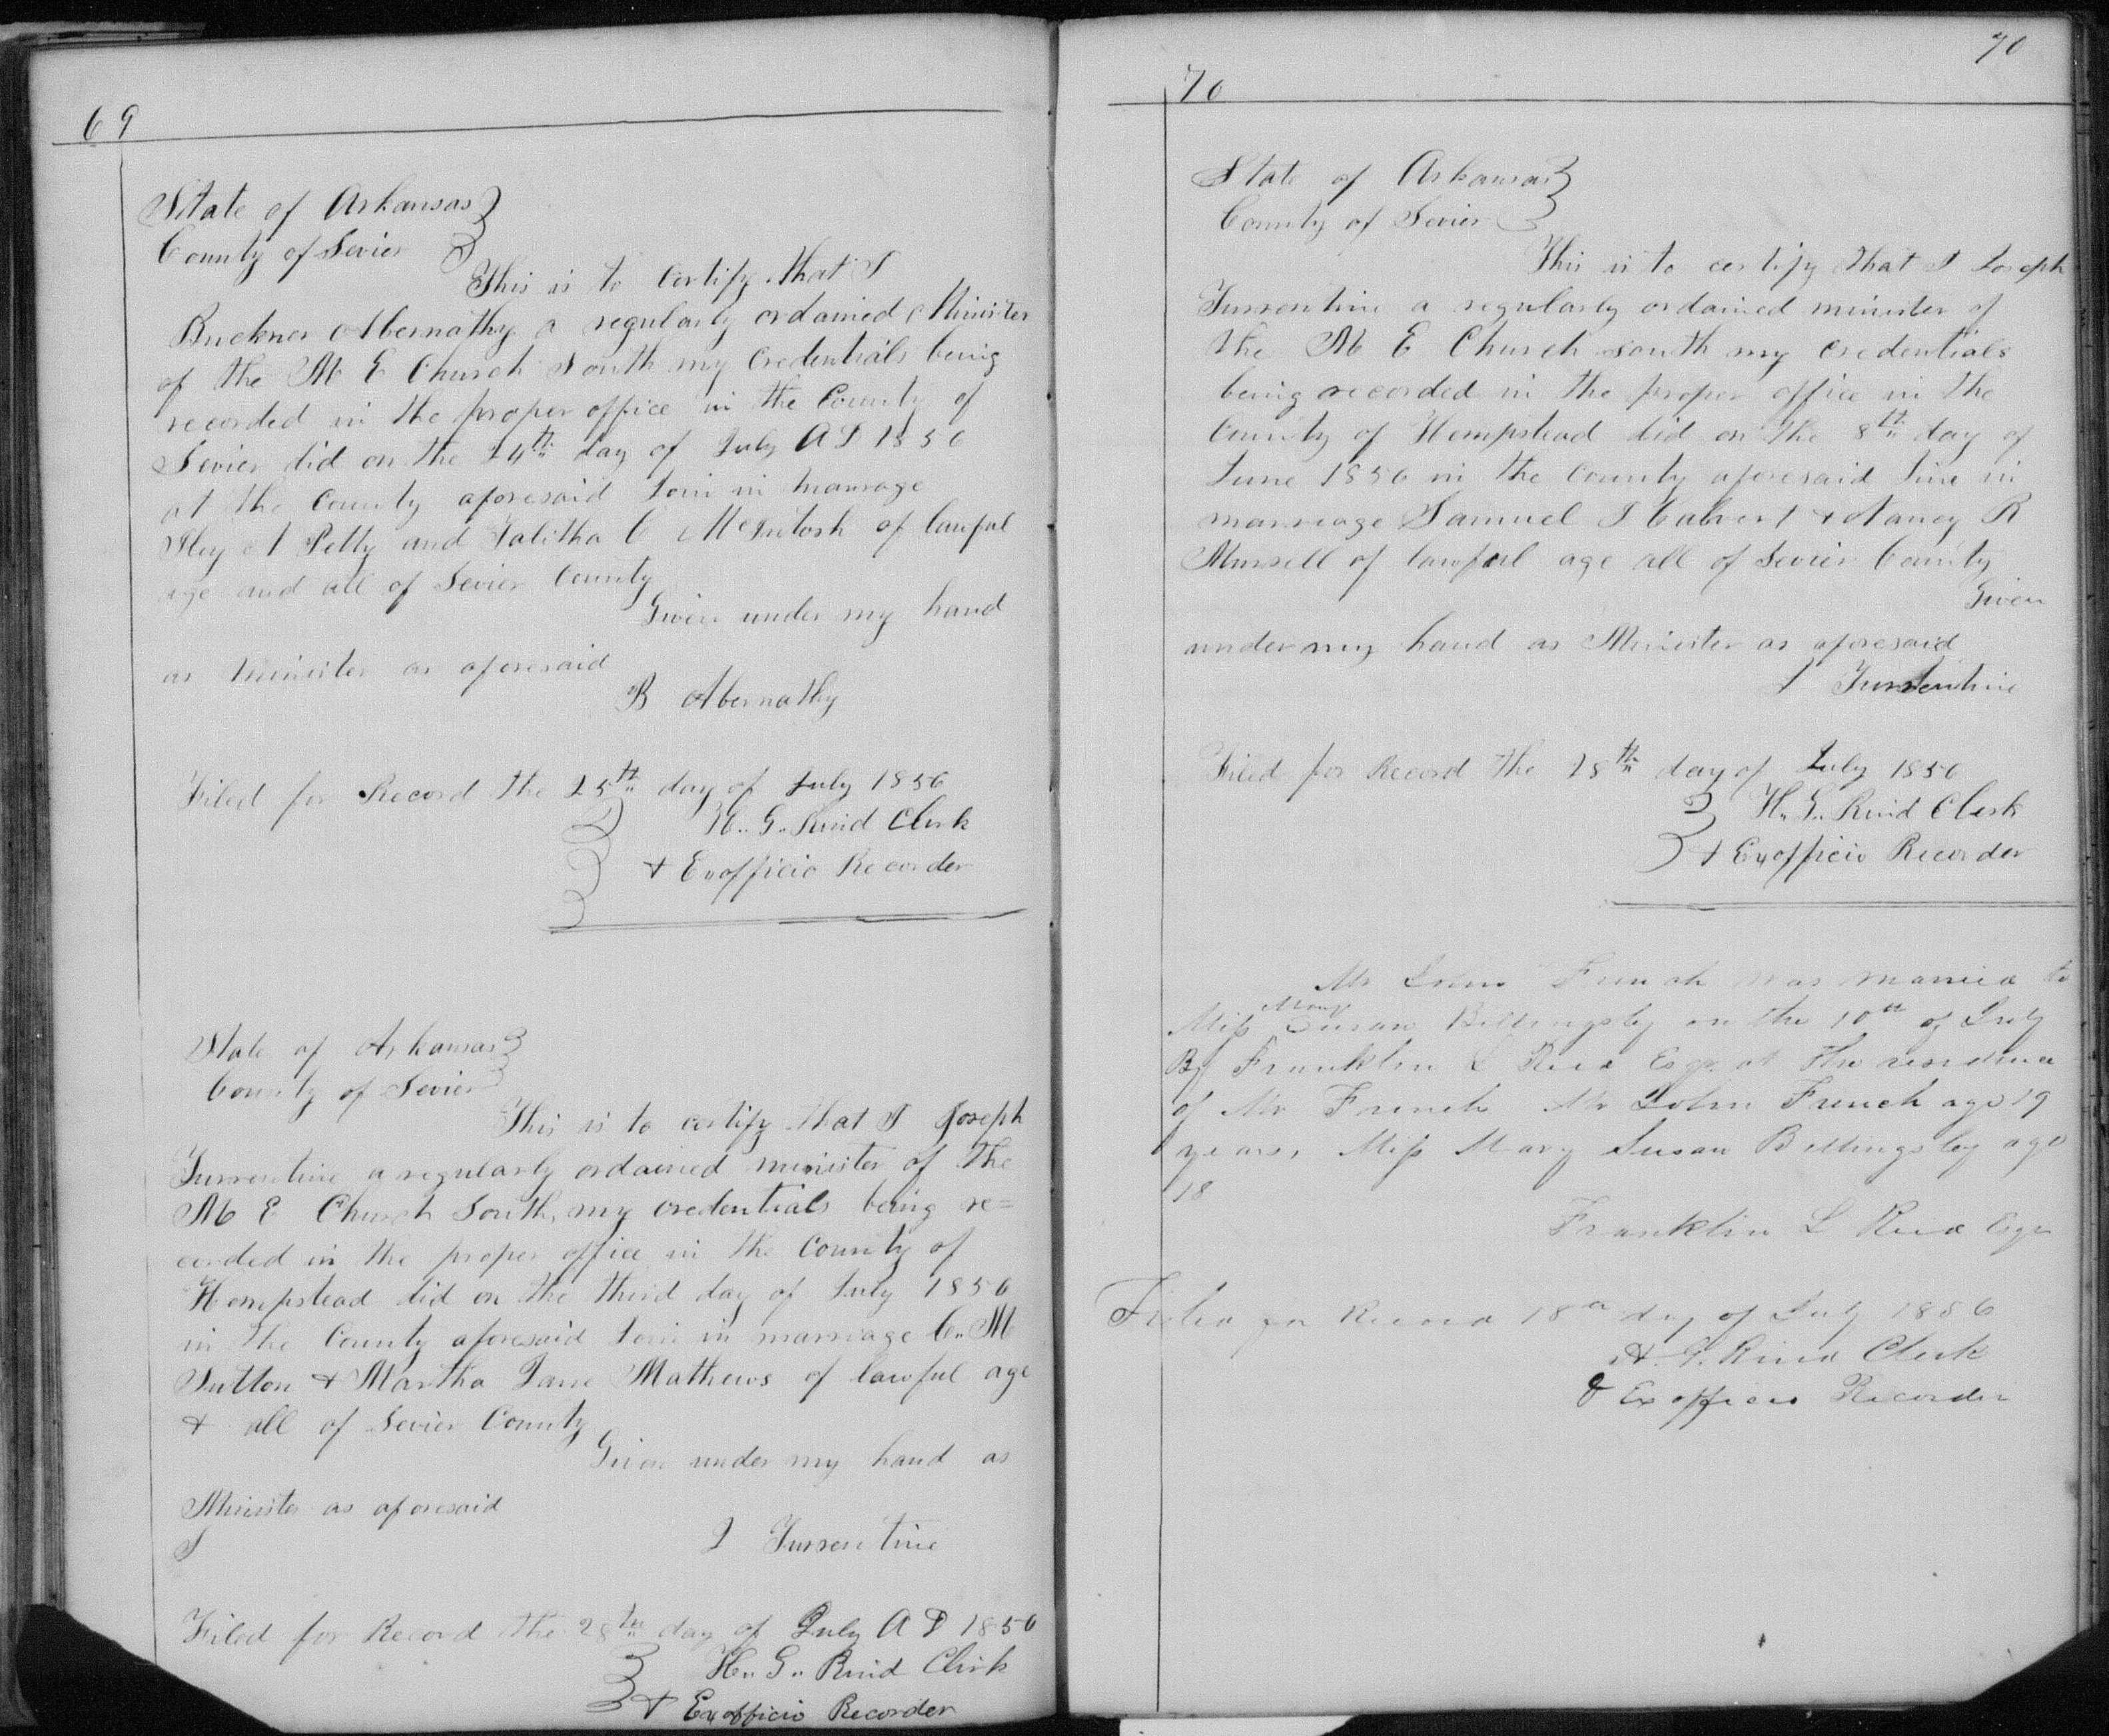 69
State of Arkansas
County of Sevier
This is to Certify that I
Buckner Abernathy a regularly ordained Minister
of the M E Church South my Credentials being
recorded in the proper office in the County of
Sevier did on the 24th day of July A D 1856
at the County aforesaid Join in marriage
A Petty and Talitha C McIntosh of lawful
age and all of Sevier County
Given under my hand
as minister as aforesaid
B Abernathy
Filed for Record the 25th day of July 1856
H. G. Clerk
& Exofficio Recorder
State of Arkansas
County of Sevier
This is to certify that I Joseph
Turrentine a regularly ordained minister of the
M E Church South, my credentials being re=
corded in the proper office in the County of
Hempstead did on the third day of July 1856
in the County aforesaid Join in marriage C. M
Sutton & Martha Jane Mathews of lawful age
& all of Sevier County
Given under my hand as
Minister as aforesaid
J Turrentine
Filed for Record the 28th day of July A D 1856
H. G. Clerk
& Exofficio Recorder
70
70
State of Arkansas
County of Sevier
This is to certify that I Joseph
Turrentine a regularly ordained minister of
the M E Church south my credentials
being recorded in the proper office in the
County of Hempstead did on the 8th day of
June 1856 in the County aforesaid Jine in
marriage Samuel J Calvert & Nancy R
of lawful age all of Sevier County
Given
under my hand as Minister as aforesaid
J Turrentine
Filed for Record the 28th day of July 1856
H. G. Clerk
& Exofficio Recorder
Mr John French was married to
Miss Mary Susan Billingsley on the 10th of July
By Franklin L Esqr at the residence
of Mr French Mr John French age 19
years, Miss Mary Susan Billingsley age
18
Franklin L Esqr
Filed for Record 18 day of July 1856
H. G. Clerk
& Ex officio Recorder